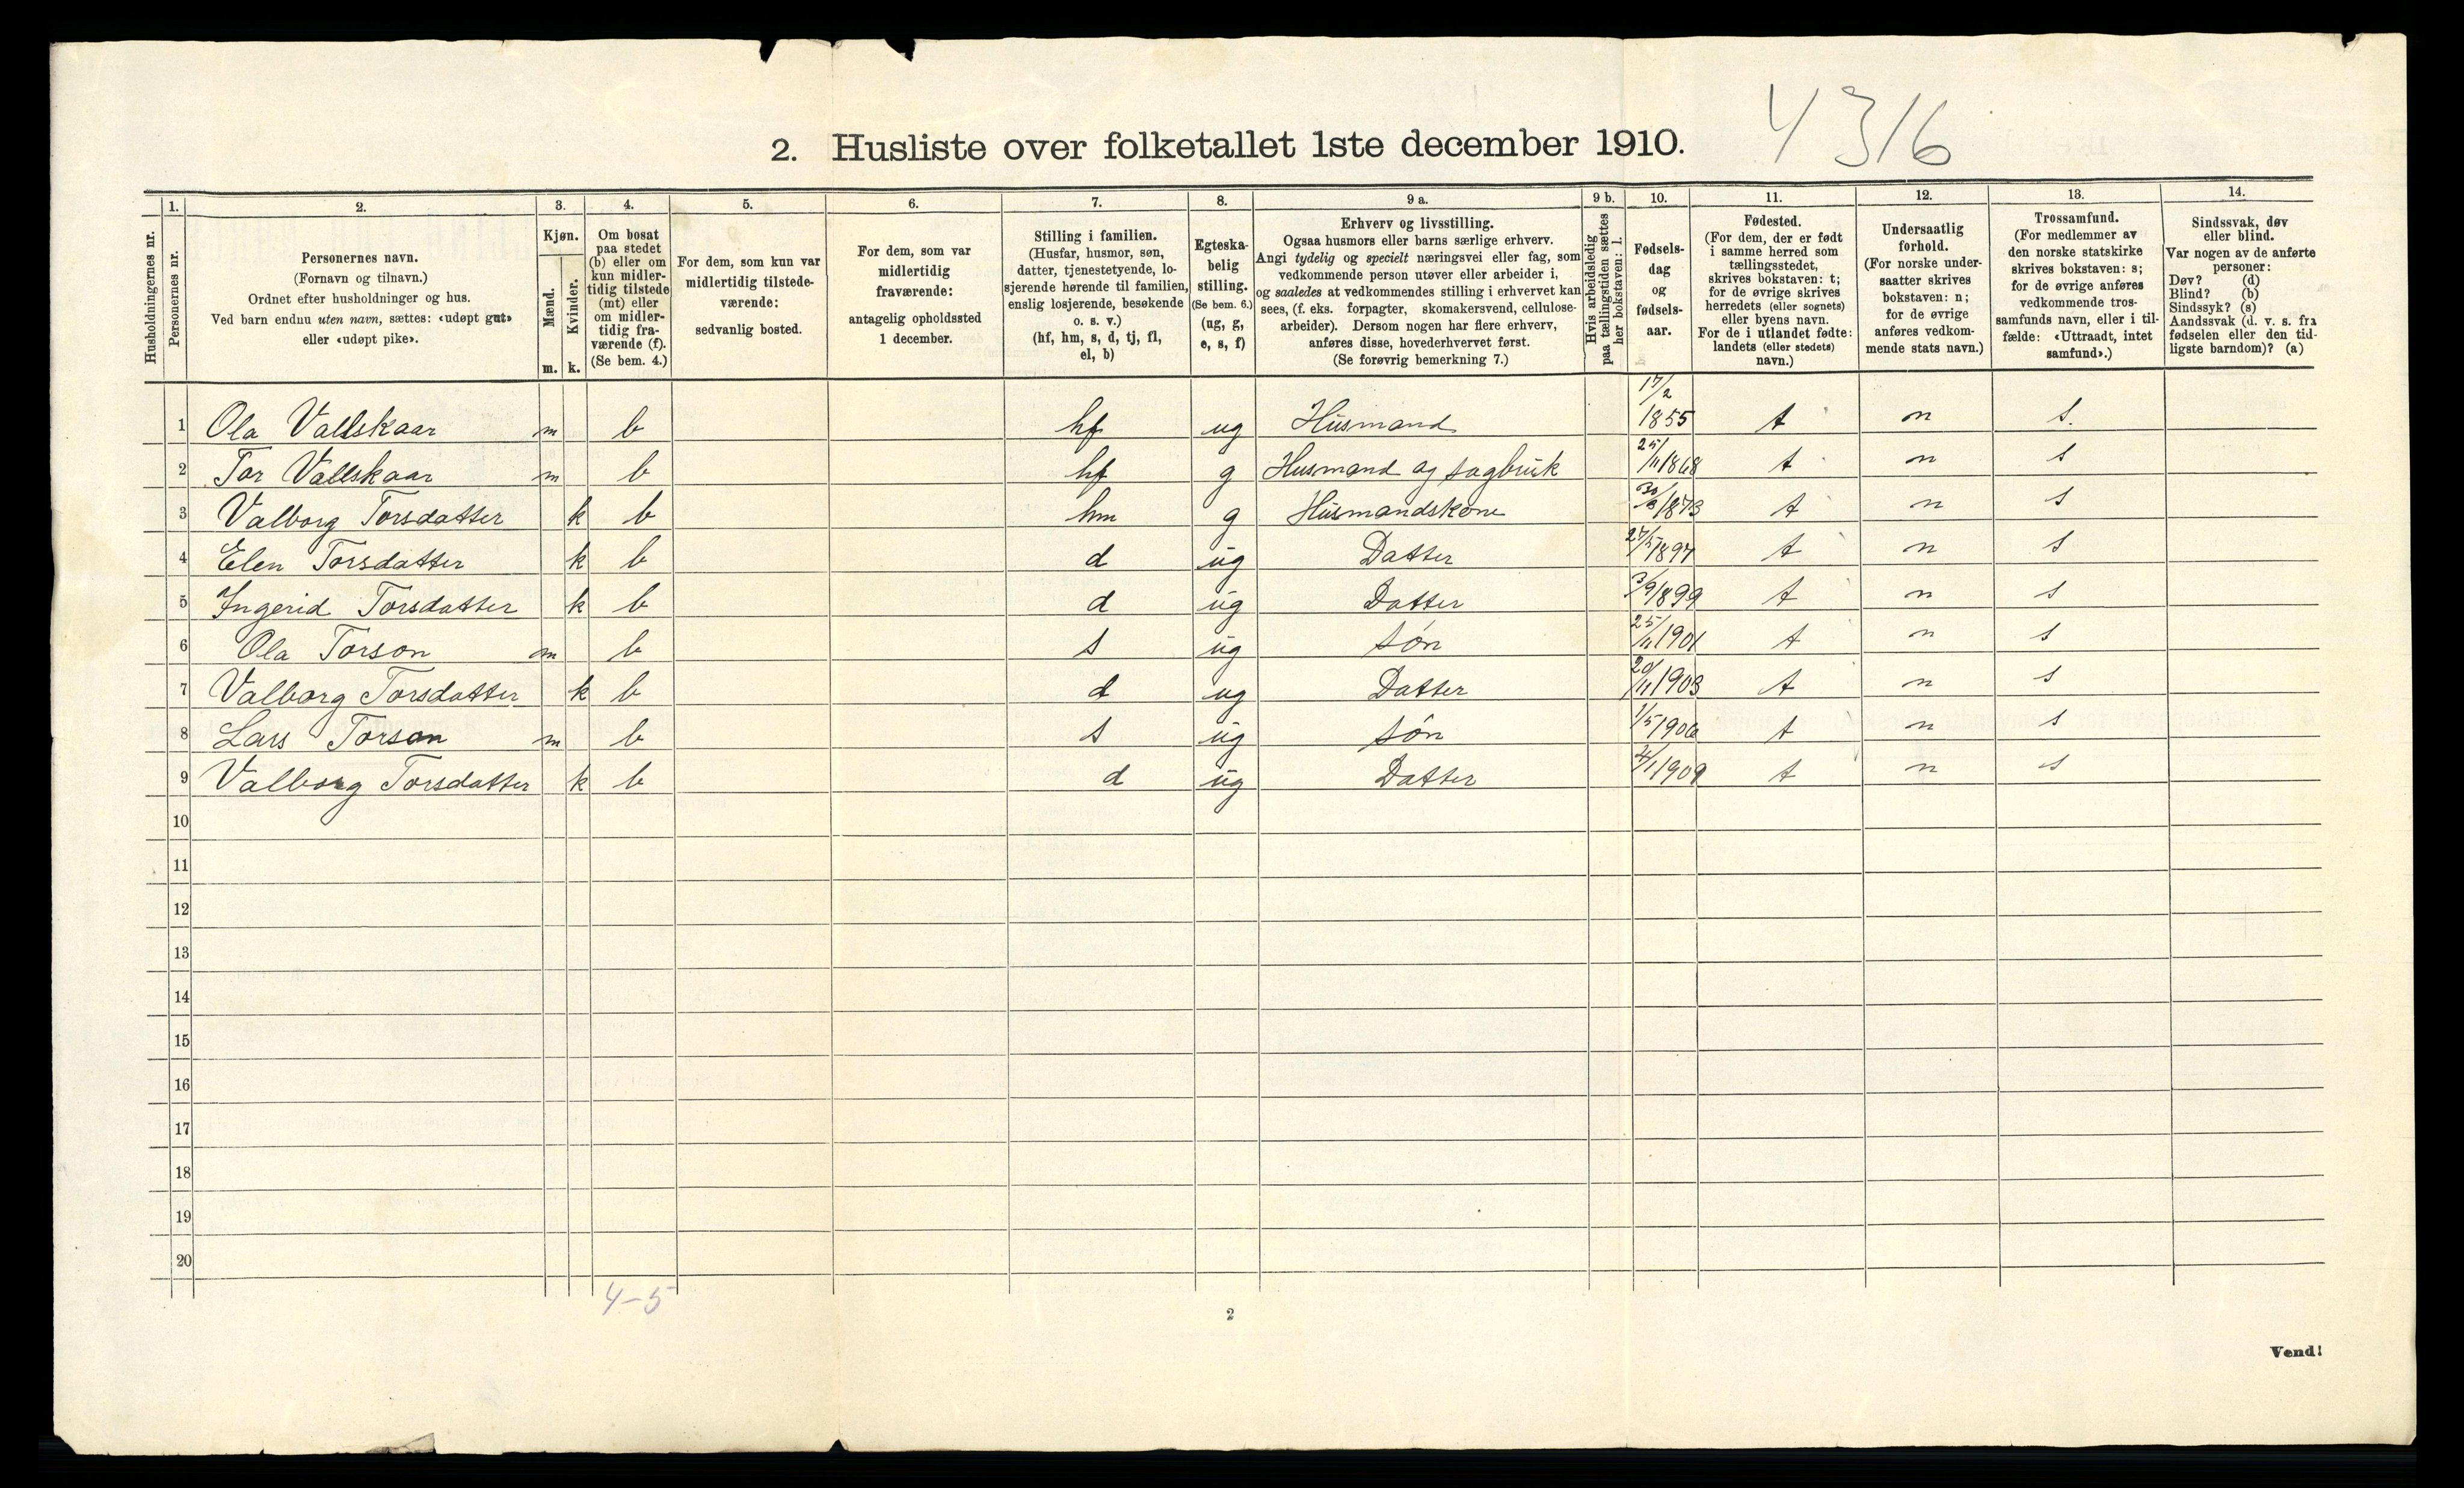 4316
2. Husliste over folketallet 1ste december 1910.
Husholdningernes nr.
1.
Personernes nr.
2.
Personernes navn.
(Fornavn og tilnavn.)
Ordnet efter husholdninger og hus.
Ved barn endnu uten navn, sættes: «udøpt gut»
eller «udøpt pike».
3.
Kjøn.
Mænd.
Kvinder.
m. k.
4.
Om bosat
paa stedet
(b) eller om
kun midler-
tidig tilstede
(mt) eller
om midler-
tidig fra-
værende (f).
(Se bem. 4.)
5.
For dem, som kun var
midlertidig tilstede-
værende:
sedvanlig bosted.
6.
For dem, som var
midlertidig
fraværende:
antagelig opholdssted
1 december.
7.
Stilling i familien.
(Husfar, husmor, søn,
datter, tjenestetyende, lo-
sjerende hørende til familien,
enslig losjerende, besøkende
o. s. v.)
(hf, hm, s, d, tj, fl,
el, b)
8.
Egteska-
belig
stilling.
(Se bem. 6.)
(ug, g,
e, s, f)
9 a.
Erhverv og livsstilling.
Ogsaa husmors eller barns særlige erhverv.
Angi tydelig og specielt næringsvei eller fag, som
vedkommende person utøver eller arbeider i,
og saaledes at vedkommendes stilling i erhvervet kan
sees, (f. eks. forpagter, skomakersvend, cellulose-
arbeider). Dersom nogen har flere erhverv,
anføres disse, hovederhvervet først.
(Se forøvrig bemerkning 7.)
9 b.
Hvis arbeidsledig
paa tællingstiden sættes
her bokstaven: l.
10.
Fødsels-
dag
og
fødsels-
aar.
11.
Fødested.
(For dem, der er født
i samme herred som
tællingsstedet,
skrives bokstaven: t;
for de øvrige skrives
herredets (eller sognets)
eller byens navn.
For de i utlandet fødte:
landets (eller stedets)
navn.)
12.
Undersaatlig
forhold.
(For norske under-
saatter skrives
bokstaven: n;
for de øvrige
anføres vedkom-
mende stats navn.)
13.
Trossamfund.
(For medlemmer av
den norske statskirke
skrives bokstaven: s;
for de øvrige anføres
vedkommende tros-
samfunds navn, eller i til-
fælde: «Uttraadt, intet
samfund».)
14.
Sindssvak, døv
eller blind.
Var nogen av de anførte
personer:
Døv? (d)
Blind? (b)
Sindssyk? (s)
Aandssvak (d. v. s. fra
fødselen eller den tid-
ligste barndom)? (a)
1 Ola Vallskaar m b hf ug Husmand 17/2 1855 t n s.
2 Tor Vallskaar m b hf g Husmand og sagbruk 25/11 1868 t n s
3 Valborg Torsdatter k b hm g Husmandskone 1873 t n s
4 Elen Torsdatter k b d ug Datter 27/5 1897 t n s
5 Ingerid Torsdatter k b d ug Datter 3/9 1899 t n s
6 Ola Torson m b s ug søn 25/11 1901 t n s
7 Valborg Torsdatter k b d ug Datter 20/11 1903 t n s
8 Lars Torson m b s ug søn 1/5 1906 t n s
9 Valborg Torsdatter k b d ug Datter 1909 t n s
10
11
12
13
14
15
16
17
18
19
20
4-5
2
Vend!